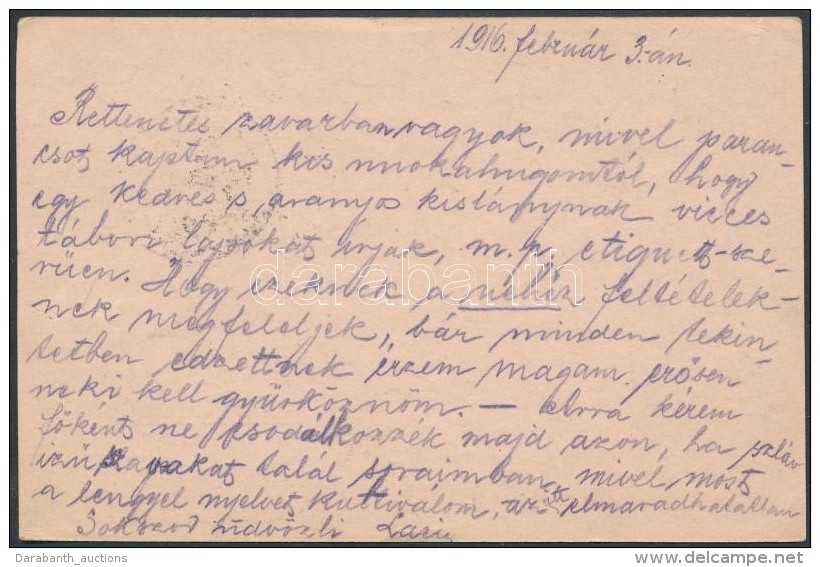 1916. február 3-án.
Rettenetes zavarban vagyok, mivel paran-
csot kaptam kis unokahugomtól, hogy
egy kedves s, aranyos kislánynak vicces
tábori lapokat irjak, m. p. etiquett-sze-
rüen. Hogy ezeknek a nehéz feltételek-
nek megfeleljek, bár minden tekin-
tetben edzettnek érzem magam erősen
neki kell gyürkőznöm. — Arra kérem
főként ne csodálkozzék majd azon, ha szláv
izü szavakat talál soraimban, mivel most
a lengyel nyelvet kultivalom, az itt elmaradhatatlan
Sokszor üdvözli Laci
darabanth
Darabanth_auctions
delcampe.net